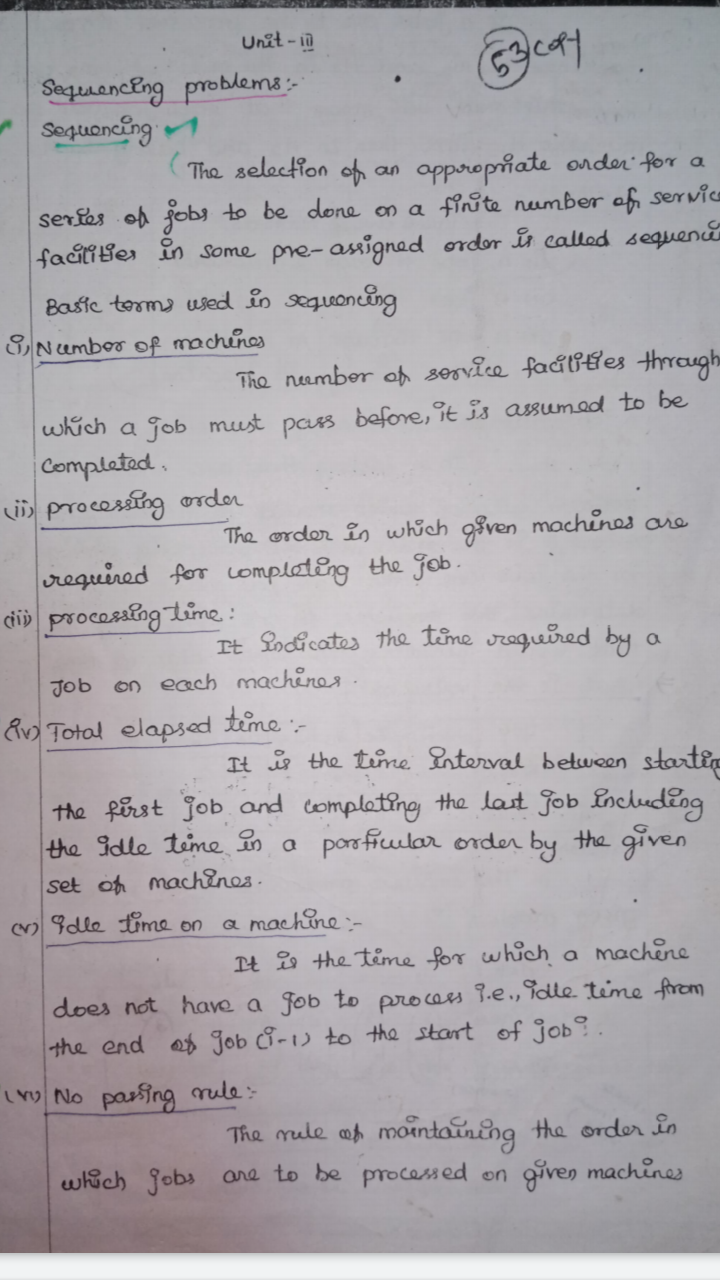 Unit - III
53 copy
Sequencing problems:-
Sequencing
(The selection of an appropriate order for a
series of jobs to be done on a finite number of servic
facilities in some pre-assigned order is called sequenci
Basic terms used in sequencing
(i) Number of machines
The number of service facilities through
which a job must pass before, it is assumed to be
completed.
(ii) processing order
The order in which given machines are
required for completing the job.
(iii) processing time:
It indicates the time required by a
Job on each machines.
(iv) Total elapsed time:-
It is the time interval between startin
the first job and completing the last job including
the idle time in a particular order by the given
set of machines.
(v) Idle time on a machine:-
It is the time for which a machine
does not have a job to process i.e., idle time from
the end of job (i-1) to the start of job i.
(vi) No passing rule:-
The rule of maintaining the order in
which jobs are to be processed on given machines